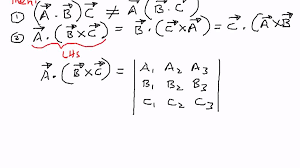 ① (A⃗ · B⃗) C⃗ ≠ A⃗ (B⃗ · C⃗)
② A⃗ · (B⃗ × C⃗) = B⃗ · (C⃗ × A⃗) = C⃗ · (A⃗ × B⃗
LHS
A⃗ · (B⃗ × C⃗) = | A₁ A₂ A₃ |
| B₁ B₂ B₃ |
| C₁ C₂ C₃ |